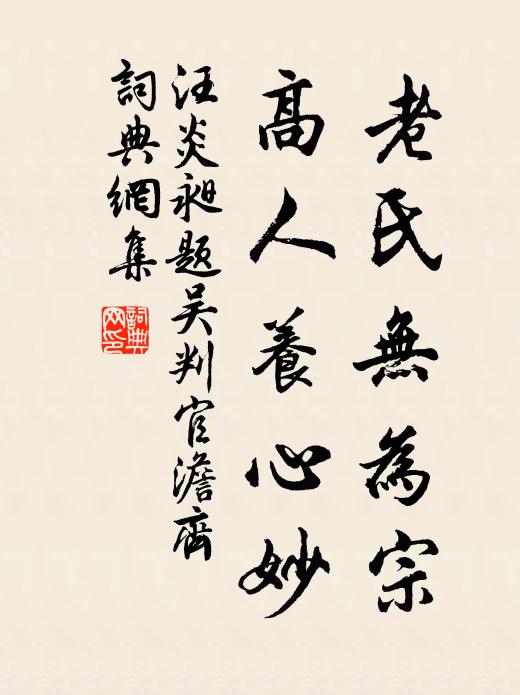 老氏無為宗
高人養心妙
汪炎昶題吴判官澹齊
詞典網集
詞典
网印